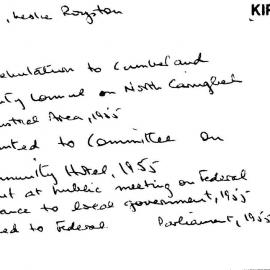 , Leslie Royston
KIR
Deputation to Cumberland
County Council on North
Industrial Area, 1955
to Committee on
Community Hotel, 1955
at public meeting on Federal
to local government, 1955
to Federal Parliament, 1955